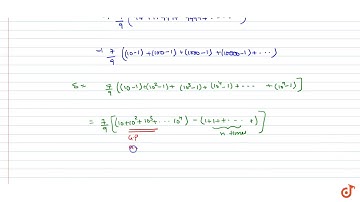 ⇒ 7/9 ((10-1)+(100-1)+(1000-1)+(10000-1)+....)
S = 7/9 ((10-1)+(10²-1)+(10³-1)+(10⁴-1)+..... +(10ⁿ-1)]
= 7/9 [(10+10²+10³+... 10ⁿ) - (1+1+.... )]
G.P n times